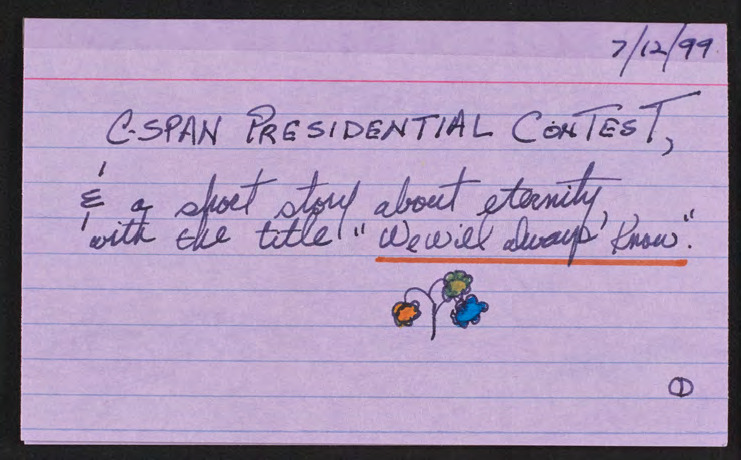 7/12/99
C-SPAN PRESIDENTIAL CONTEST,
& a short story about eternity,
with the title "We will always know".
①